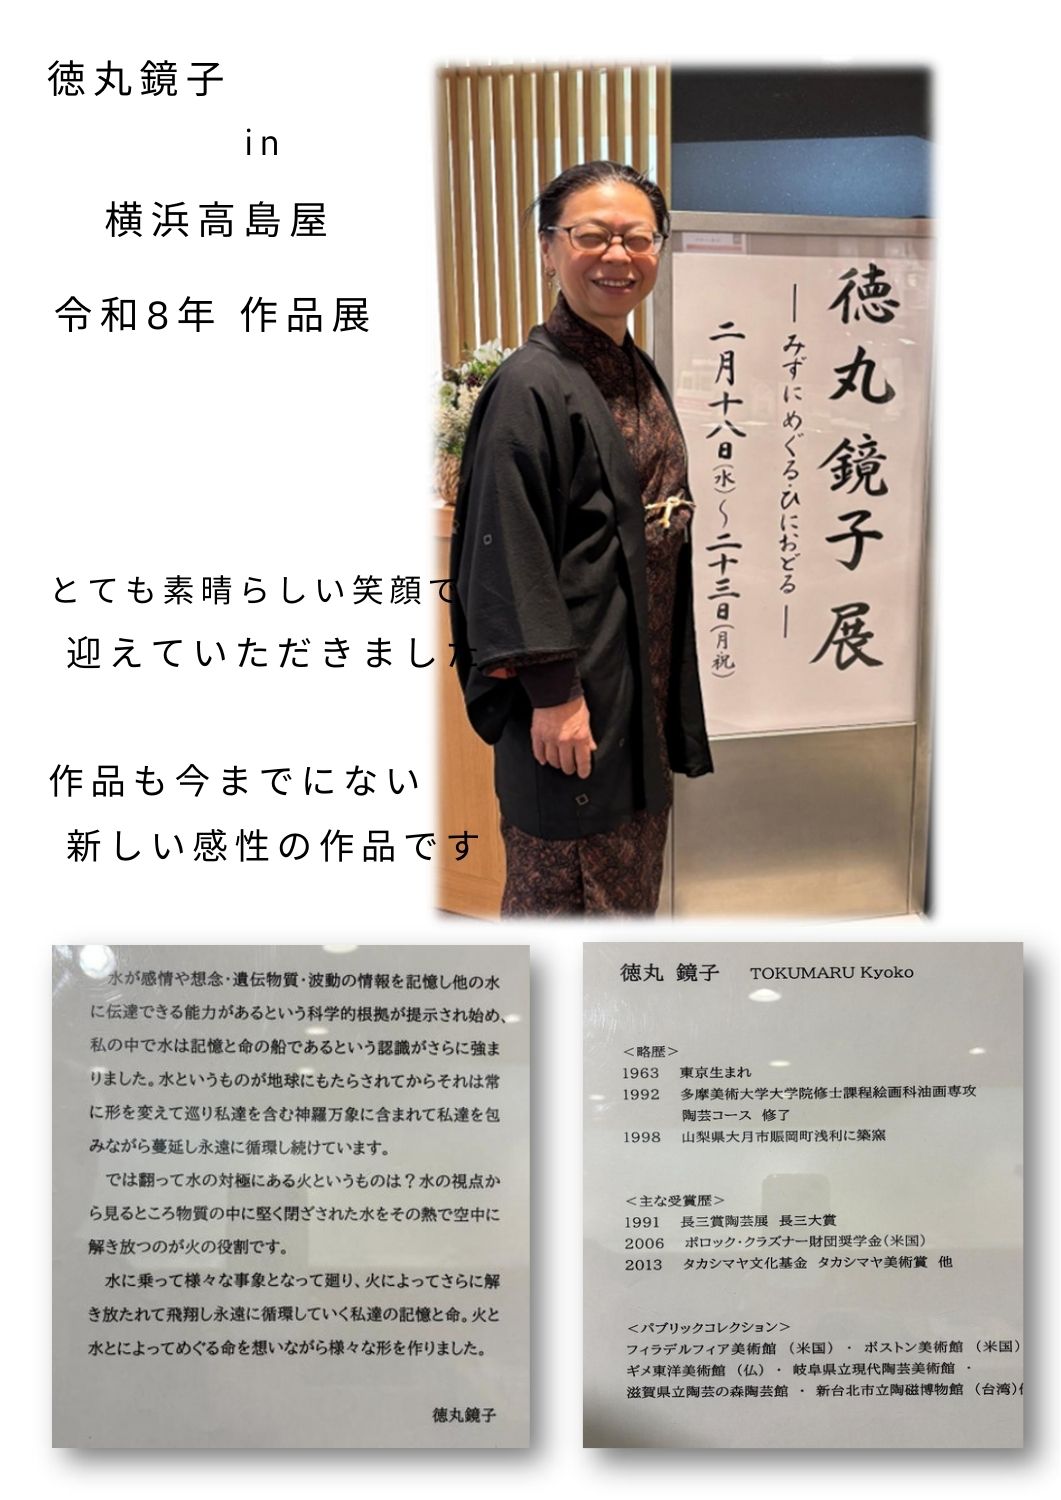 徳丸鏡子
in
横浜高島屋
令和8年 作品展
徳丸鏡子展
―みずにめぐる・ひにおどる―
二月十八日(水)〜二十三日(月祝)
とても素晴らしい笑顔で
迎えていただきました
作品も今までにない
新しい感性の作品です
水が感情や想念・遺伝物質・波動の情報を記憶し他の水
に伝達できる能力があるという科学的根拠が提示され始め、
私の中で水は記憶と命の船であるという認識がさらに強ま
りました。水というものが地球にもたらされてからそれは常
に形を変えて巡り私達を含む神羅万象に含まれて私達を包
みながら蔓延し永遠に循環し続けています。
では翻って水の対極にある火というものは？水の視点か
ら見るところ物質の中に堅く閉ざされた水をその熱で空中に
解き放つのが火の役割です。
水に乗って様々な事象となって廻り、火によってさらに解
き放たれて飛翔し永遠に循環していく私達の記憶と命。火と
水とによってめぐる命を想いながら様々な形を作りました。
徳丸鏡子
徳丸 鏡子 TOKUMARU Kyoko
＜略歴＞
1963 東京生まれ
1992 多摩美術大学大学院修士課程絵画科油画専攻
陶芸コース 修了
1998 山梨県大月市賑岡町浅利に築窯
＜主な受賞歴＞
1991 長三賞陶芸展 長三大賞
2006 ポロック・クラズナー財団奨学金(米国)
2013 タカシマヤ文化基金 タカシマヤ美術賞 他
＜パブリックコレクション＞
フィラデルフィア美術館 （米国） ・ ボストン美術館 （米国）
ギメ東洋美術館 （仏） ・ 岐阜県立現代陶芸美術館 ・
滋賀県立陶芸の森陶芸館 ・ 新台北市立陶磁博物館 （台湾）